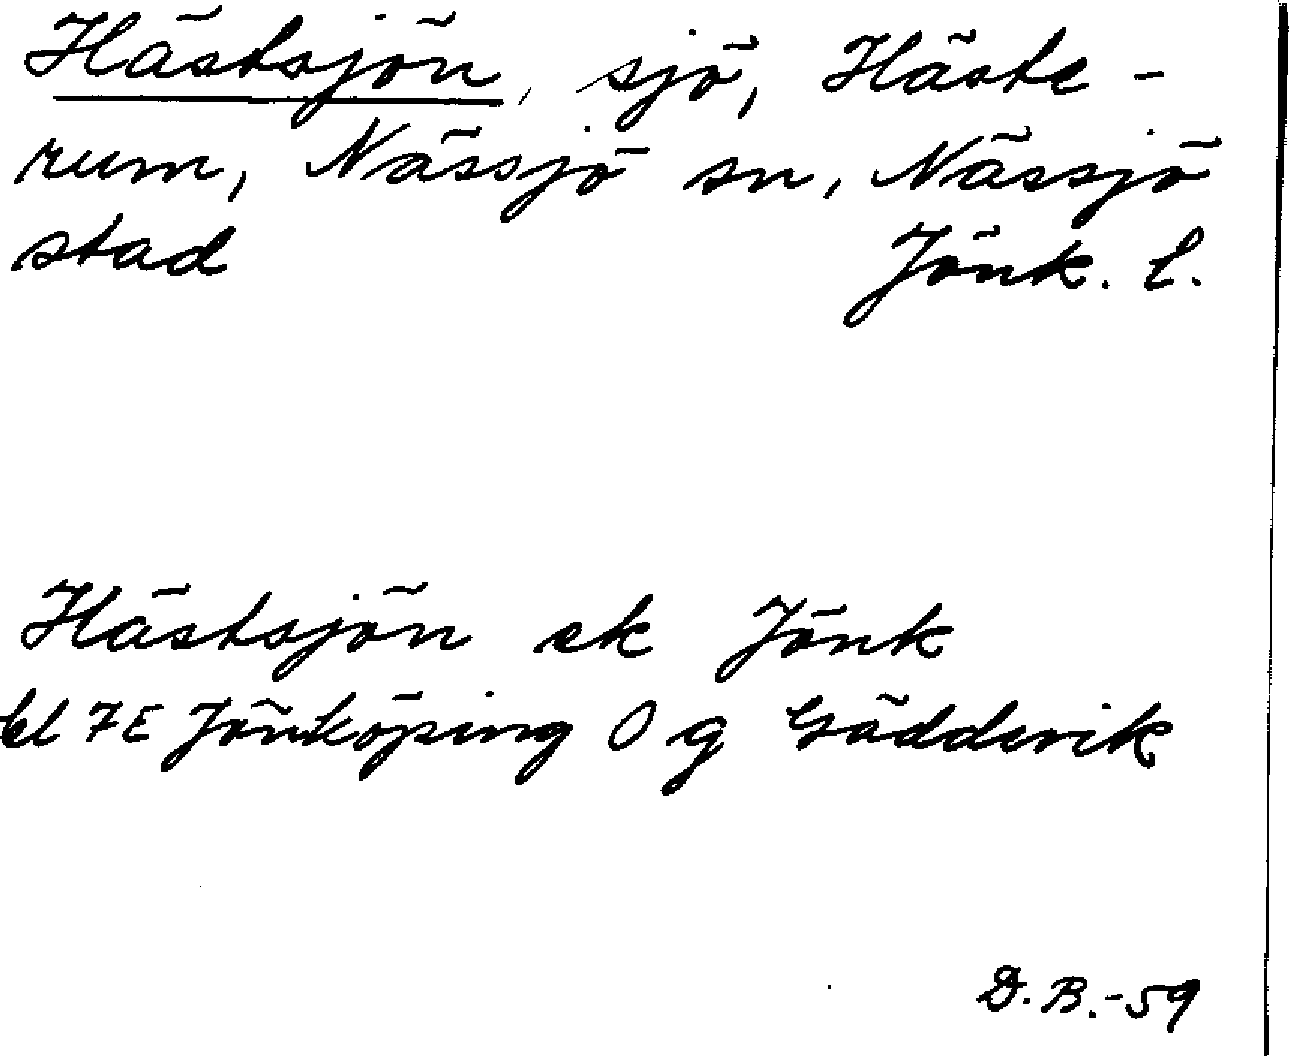 Hästsjön, sjö, Häste-
rum, Nässjö sn, Nässjö
stad Jönk. l.
Hästsjön ek Jönk
bl 7E Jönköping O g Gäddevik
D. B. -59